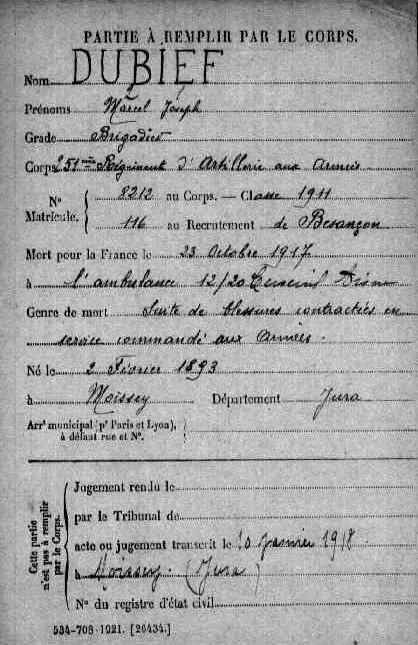 PARTIE À REMPLIR PAR LE CORPS.
Nom DUBIEF
Prénoms Marcel Joseph
Grade Brigadier
Corps 251me Régiment d'Artillerie aux Armées
N° Matricule. { 8212 au Corps. — Classe 1911
116 au Recrutement de Besançon
Mort pour la France le 23 Octobre 1917
à l'ambulance 12/20 Aisne
Genre de mort Suite de blessures contractées en
service commandé aux Armées.
Né le 2 Février 1893
à Moissey Département Jura
Arrt municipal (pr Paris et Lyon),
à défaut rue et N°.
Cette partie n'est pas à remplir par le Corps.
Jugement rendu le
par le Tribunal de
acte ou jugement transcrit le 10 Janvier 1918
à Moissey (Jura)
N° du registre d'état civil
534-708-1921. [26434.]